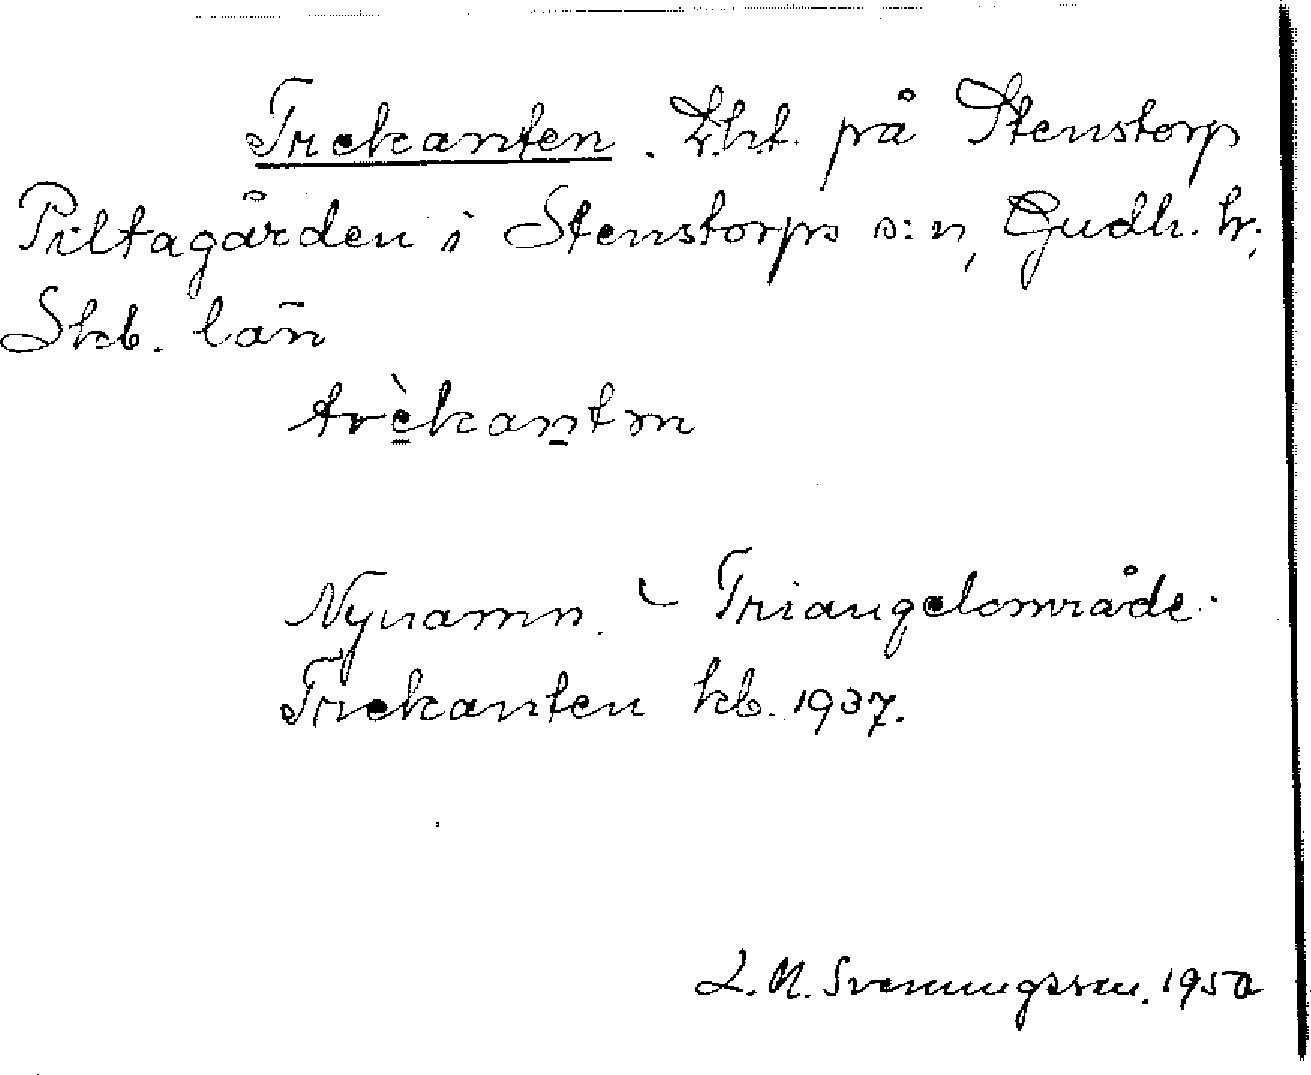 Trekanten. Lht. på Stenstorp
Piltagården i Stenstorps s:n, Gudh. hr;
Skb. län
trèkantn
Nynamn. – Triangelområde.
Trekanten kb. 1937.
L. M. Svenungsson. 1950